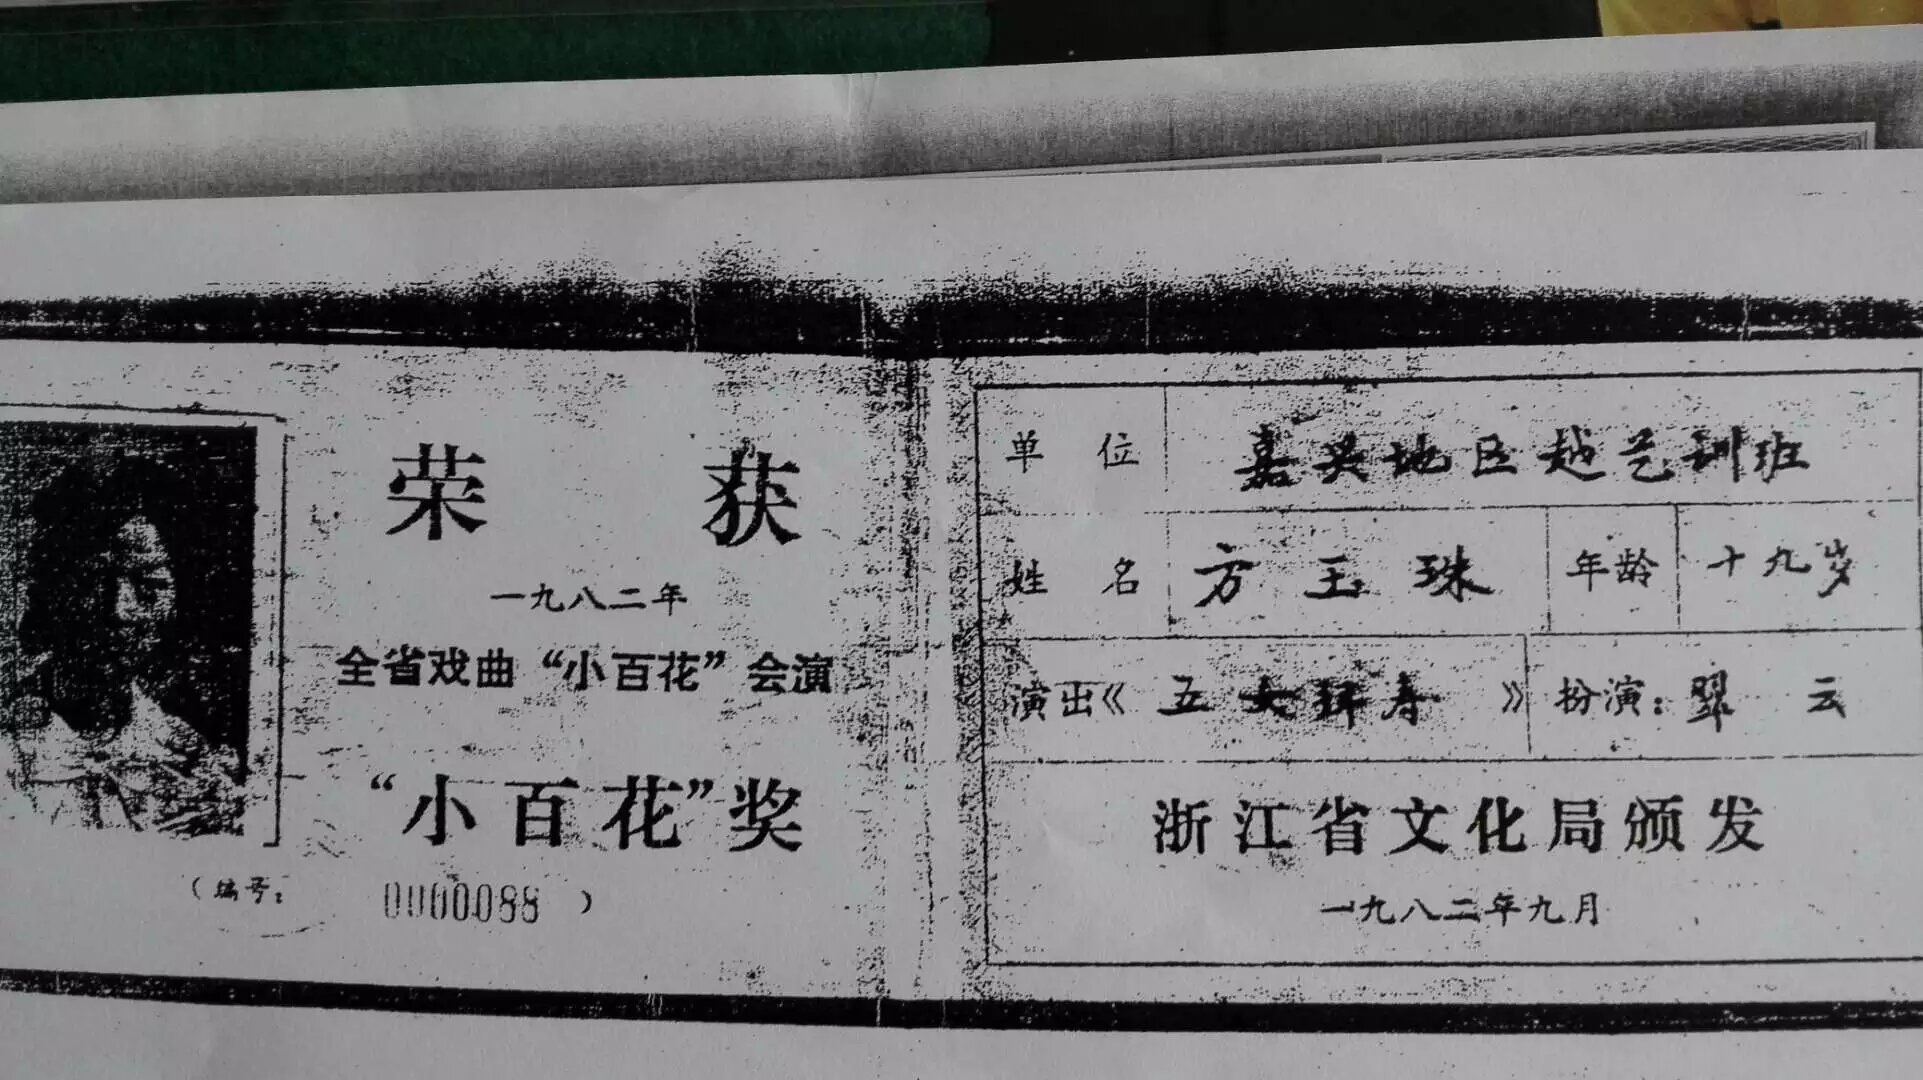 荣 获
一九八二年
全省戏曲“小百花”会演
“小百花”奖
（编号： 0000088 ）
单 位 嘉兴地区越艺训班
姓 名 方玉珠 年龄 十九岁
演出《 五女拜寿 》 扮演：翠 云
浙江省文化局颁发
一九八二年九月